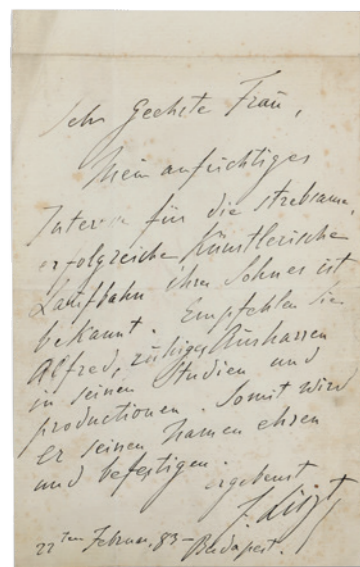 Sehr Geehrte Frau,
Mein aufrichtiges
Interesse für die strebsame,
erfolgreiche Künstlerische
Laufbahn ihres Sohnes ist
bekannt. Empfehlen Sie
Alfred, ruhiges Ausharren
in seinen Studien und
productionen. Somit wird
er seinen Namen ehren
und befestigen.
ergebenst
F. Liszt
22ten Februar, 83 – Budapest.